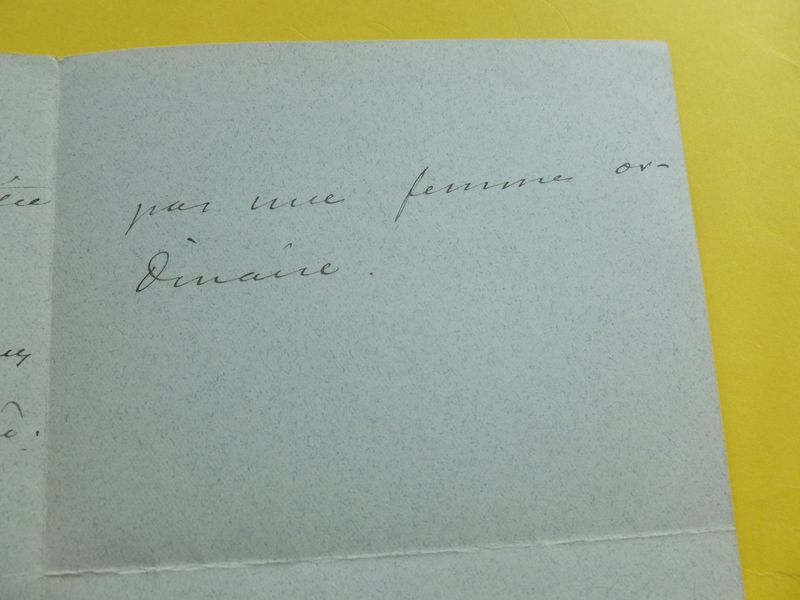 par une femme or-
dinaire.